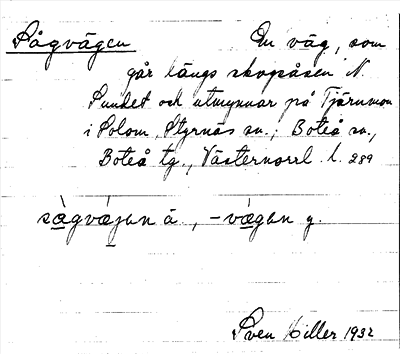 Sågvägen En väg, som
går längs skogsåsen N.
Sundet och utmynnar på Tjärnmon
i Polom, Styrnäs sn.; Boteå sn.,
Boteå tg., Västernorrl. l. 289
sågväjen ä., -vägen y.
Sven Hiller 1932